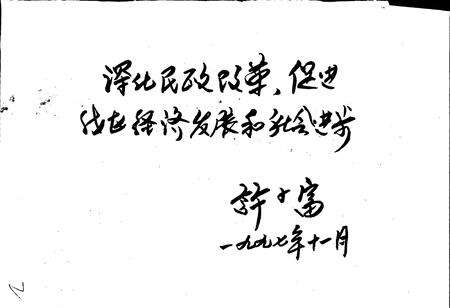 深化民政改革、促进
经济发展和社会进步
許 富
一九九七年十一月